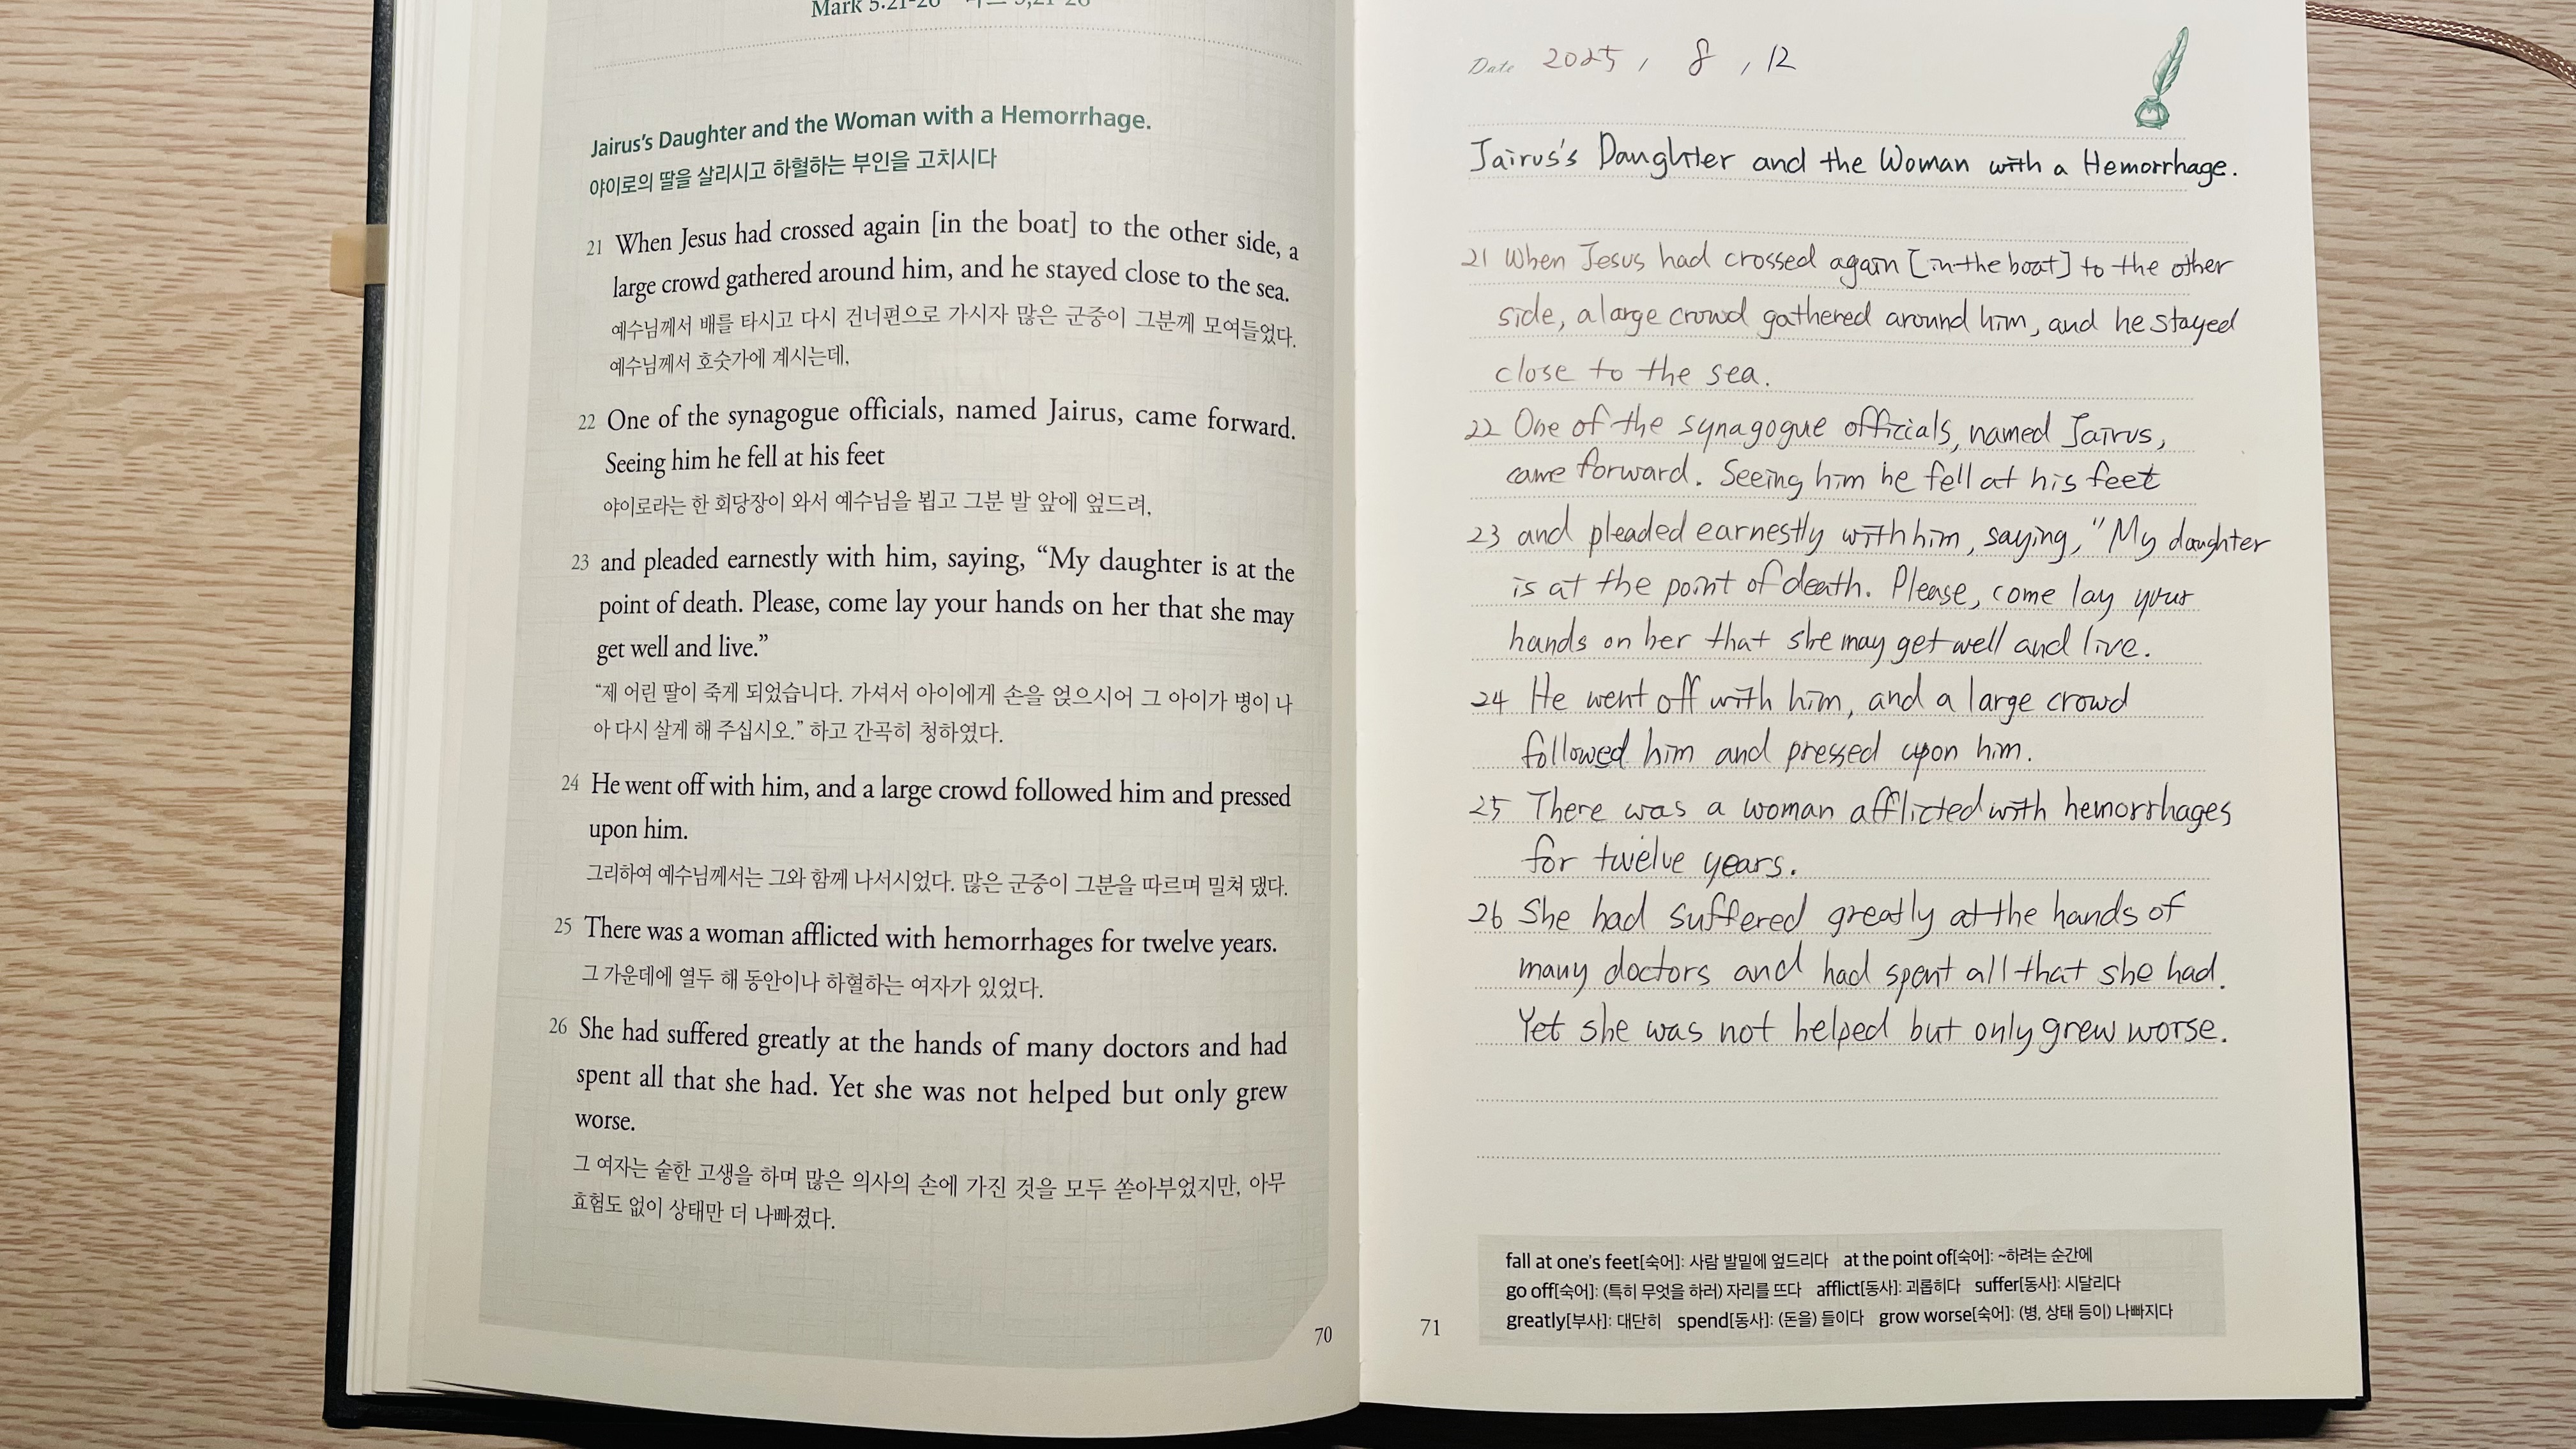 Mark 5:21-26
Jairus's Daughter and the Woman with a Hemorrhage.
야이로의 딸을 살리시고 하혈하는 부인을 고치시다
21 When Jesus had crossed again [in the boat] to the other side, a
large crowd gathered around him, and he stayed close to the sea.
예수님께서 배를 타시고 다시 건너편으로 가시자 많은 군중이 그분께 모여들었다.
예수님께서 호숫가에 계시는데,
22 One of the synagogue officials, named Jairus, came forward.
Seeing him he fell at his feet
야이로라는 한 회당장이 와서 예수님을 뵙고 그분 발 앞에 엎드려,
23 and pleaded earnestly with him, saying, “My daughter is at the
point of death. Please, come lay your hands on her that she may
get well and live.”
“제 어린 딸이 죽게 되었습니다. 가셔서 아이에게 손을 얹으시어 그 아이가 병이 나
아 다시 살게 해 주십시오.” 하고 간곡히 청하였다.
24 He went off with him, and a large crowd followed him and pressed
upon him.
그리하여 예수님께서는 그와 함께 나서시었다. 많은 군중이 그분을 따르며 밀쳐 댔다.
25 There was a woman afflicted with hemorrhages for twelve years.
그 가운데에 열두 해 동안이나 하혈하는 여자가 있었다.
26 She had suffered greatly at the hands of many doctors and had
spent all that she had. Yet she was not helped but only grew
worse.
그 여자는 숱한 고생을 하며 많은 의사의 손에 가진 것을 모두 쏟아부었지만, 아무
효험도 없이 상태만 더 나빠졌다.
70
Date 2025, 8, 12
Jairus's Daughter and the Woman with a Hemorrhage.
21 When Jesus had crossed again [in the boat] to the other
side, a large crowd gathered around him, and he stayed
close to the sea.
22 One of the synagogue officials, named Jairus,
came forward. Seeing him he fell at his feet
23 and pleaded earnestly with him, saying, "My daughter
is at the point of death. Please, come lay your
hands on her that she may get well and live.
24 He went off with him, and a large crowd
followed him and pressed upon him.
25 There was a woman afflicted with hemorrhages
for twelve years.
26 She had suffered greatly at the hands of
many doctors and had spent all that she had.
Yet she was not helped but only grew worse.
fall at one's feet[숙어]: 사람 발밑에 엎드리다 at the point of[숙어]: ~하려는 순간에
go off[숙어]: (특히 무엇을 하러) 자리를 뜨다 afflict[동사]: 괴롭히다 suffer[동사]: 시달리다
greatly[부사]: 대단히 spend[동사]: (돈을) 들이다 grow worse[숙어]: (병, 상태 등이) 나빠지다
71